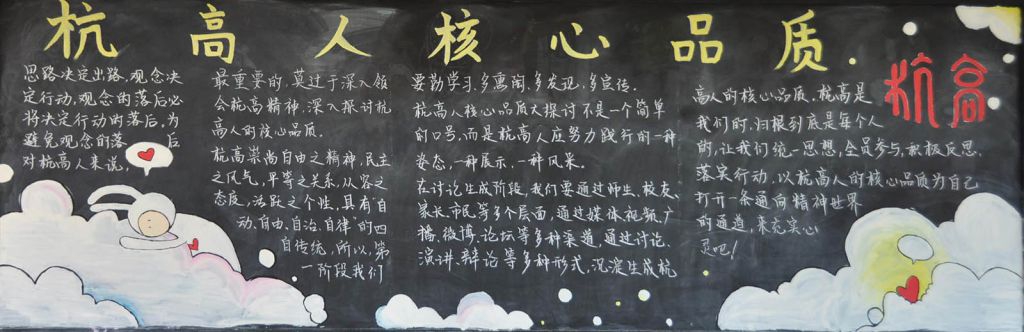 杭高人核心品质
思路决定出路,观念决
定行动,观念的落后必
将决定行动的落后,为
避免观念的落 后
对杭高人来说,
最重要的,莫过于深入领
会杭高精神,深入探讨杭
高人的核心品质.
杭高崇尚自由之精神,民主
之风气,平等之关系,从容之
态度,活跃之个性,具有自
动、自由、自治、自律"的四
自传统,所以,第
一阶段我们
要勤学习,多惠闻,多发现,多宣传.
杭高人核心品质大探讨不是一个简单
的口号,而是杭高人应努力践行的一种
姿态,一种展示,一种风采.
在讨论生成阶段,我们要通过师生、校友、
家长、市民等多个层面,通过媒体视频、广
播、微博、论坛等多种渠道,通过讨论、
演讲、辩论等多种形式,沉淀生成杭
高人的核心品质.杭高是
我们的,归根到底是每个人
的,让我们统一思想,全员参与,积极反思,
落实行动,以杭高人的核心品质为自己
打开一条通向精神世界
的通道,来充实心
灵吧!
杭高